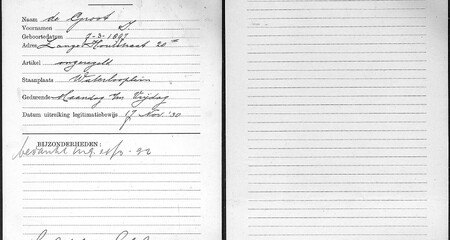 Naam de Groot
Voornamen I.
Geboortedatum 7-3-1897
Adres Lange Houtstraat 20
Artikel ongeregeld
Staanplaats Waterlooplein
Gedurende Maandag t/m Vrijdag
Datum uitreiking legitimatiebewijs 17 Nov. '30
BIJZONDERHEDEN:
bedankt